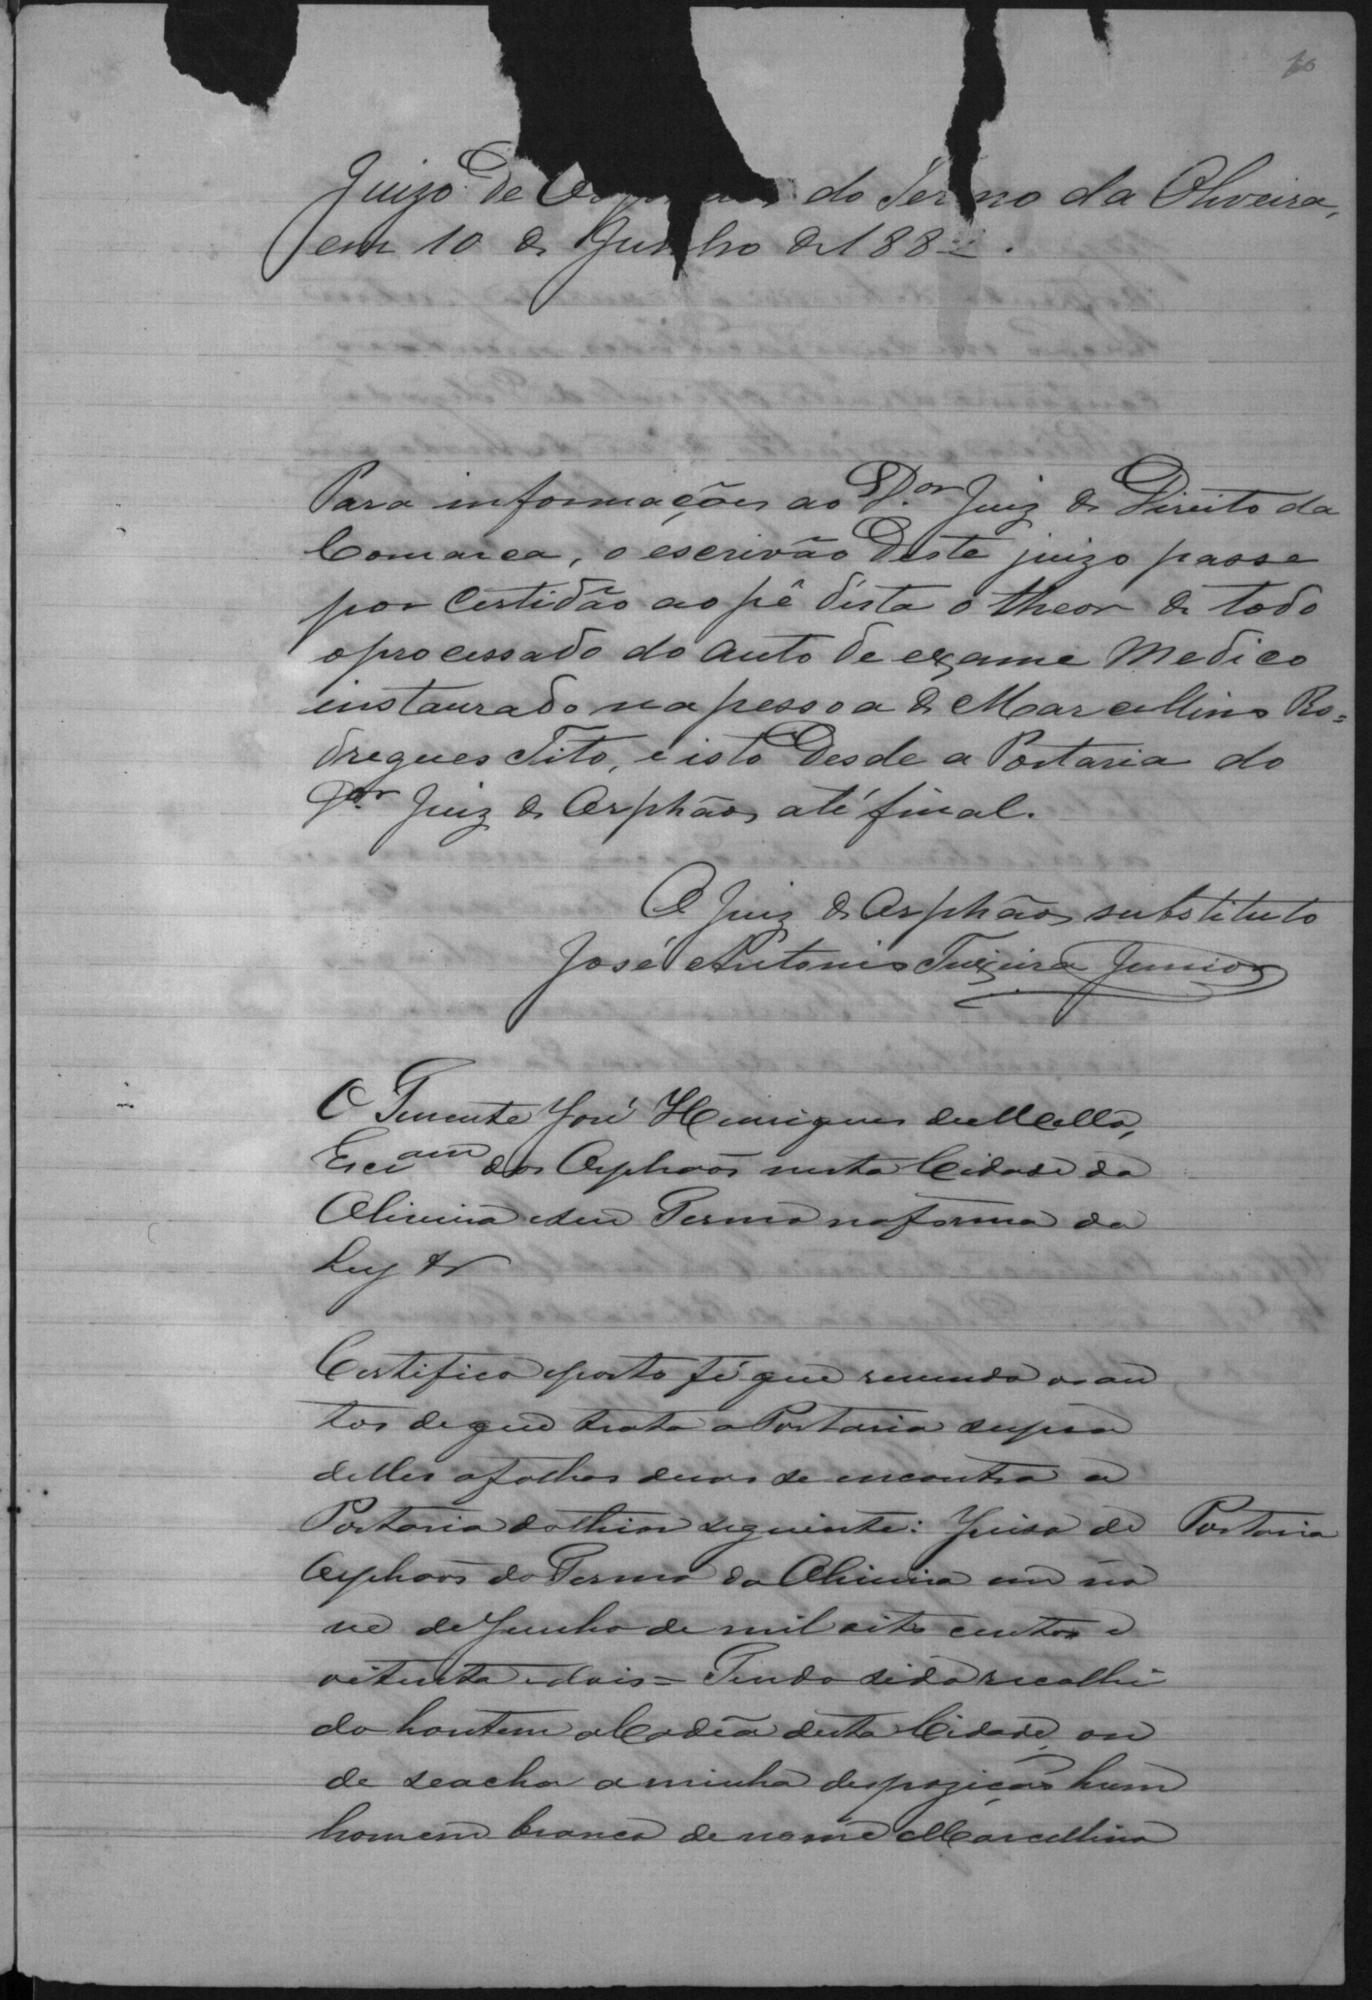 10
Juizo de Or do Termo da Oliveira,
em 10 de Junho de 188
Para informações ao Sr. Dor Juiz de Direito da
Comarca, o escrivão deste juizo passe
por Certidão ao pé dista o theor de todo
o processado do auto de exame Medico
instaurado na pessoa de Marcellino Ro=
dregues Tito, e isto desde a Portaria do
Dor Juiz de Orphãos até final.
O Juiz de Orphãos substituto
José Antonio Teixeira Junior
O Tenente José Henriques de Mello,
Escam dos Orphaõs nesta Cidade da
Oliveira e seu Termo na forma da
Ley &
Certifico e porto fé que revendo os au
tos de que trata a Portaria supra
delles a folhas duas se encontra a
Portaria do thior seguinte: Juiso de
Portaria
Orphaõs do Termo da Oliveira em no
ve de Junho de mil oito centos e
oitenta e dois = Tendo sido recolhi
do hontem a Cadêa desta Cidade, on
de se acha a minha despozição hum
homem branco de nome Marcellino